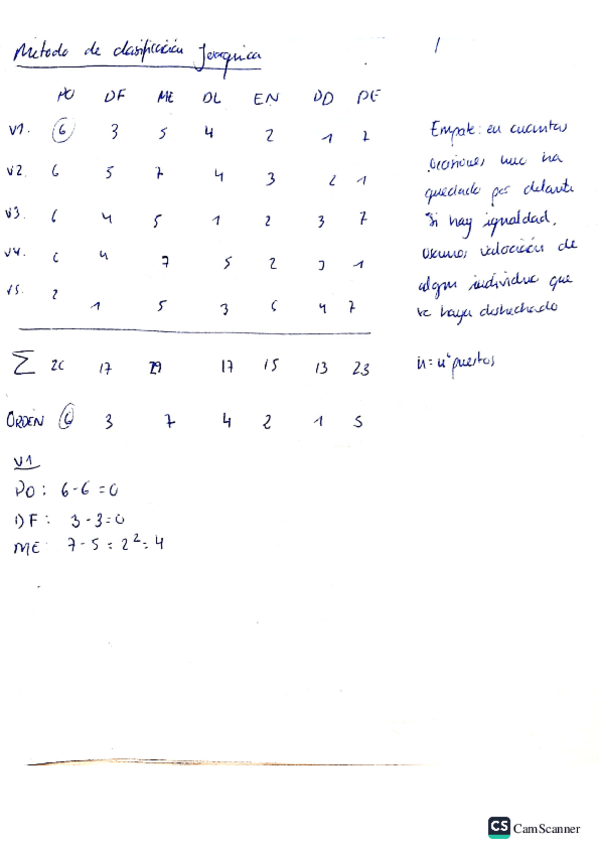 Metodo de clasificación Jerarquica
PO DF ME OL EN DD PE
V1. 6 3 5 4 2 1 7
V2. 6 5 7 4 3 2 1
V3. 6 4 5 1 2 3 7
V4. 6 4 7 5 2 3 1
V5. 2 1 5 3 6 4 7
Σ 26 17 29 17 15 13 23
ORDEN 6 3 7 4 2 1 5
V1
PO: 6-6=0
DF: 3-3=0
ME 7-5=2²=4
Empate: en cuantas
ocasiones me ha
quedado por delante
Si hay igualdad,
valoración de
algun individuo que
se haya deshechado
n=nº puestos
CS CamScanner